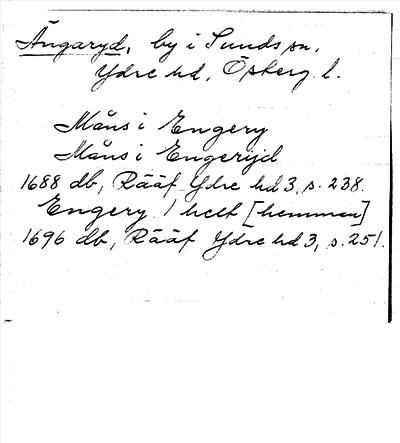 Ängaryd, by i Sunds sn,
Ydre hd, Östergl.
Måns i Engery
Måns i Engeryd
1688 db, Rääf Ydre hd 3, s. 238.
Engery 1 helt [hemman]
1696 db, Rääf Ydre hd 3, s. 251.